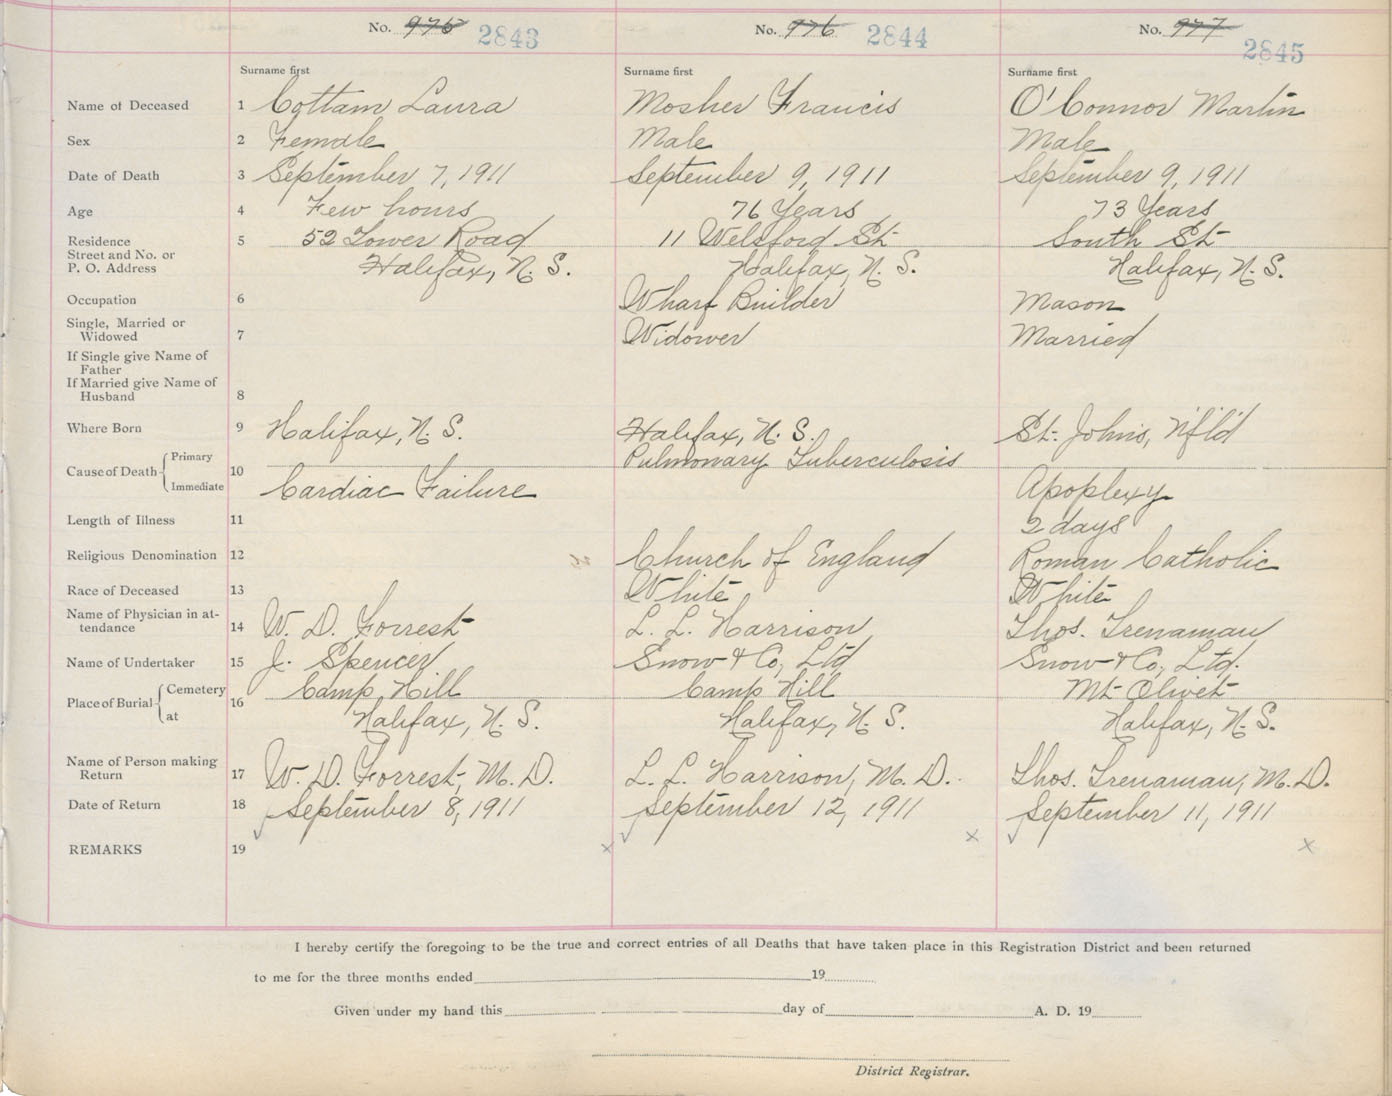 No. 975 2843 No. 976 2844 No. 977 2845
Surname first Surname first Surname first
Name of Deceased 1 Cottam Laura Mosher Francis O'Connor Martin
Sex 2 Female Male Male
Date of Death 3 September 7, 1911 September 9, 1911 September 9, 1911
Age 4 Few hours 76 Years 73 Years
Residence 5 52 Tower Road 11 Welsford St South St
Street and No. or
P. O. Address Halifax, N. S. Halifax, N. S. Halifax, N. S.
Occupation 6 Wharf Builder Mason
Single, Married or
Widowed 7 Widower Married
If Single give Name of
Father
If Married give Name of
Husband 8
Where Born 9 Halifax, N. S. Halifax, N. S. St. Johns, N'f'l'd
Cause of Death Primary Pulmonary Tuberculosis
10
Immediate Cardiac Failure Apoplexy
Length of Illness 11 2 days
Religious Denomination 12 Church of England Roman Catholic
Race of Deceased 13 White White
Name of Physician in at-
tendance 14 W. D. Forrest L. L. Harrison Thos. Trenaman
Name of Undertaker 15 J. Spencer Snow & Co, Ltd Snow & Co, Ltd.
Place of Burial Cemetery Camp Hill Camp Hill Mt Olivet
16
at Halifax, N. S. Halifax, N. S. Halifax, N. S.
Name of Person making
Return 17 W. D. Forrest, M. D. L. L. Harrison, M. D. Thos. Trenaman, M. D.
Date of Return 18 September 8, 1911 September 12, 1911 September 11, 1911
REMARKS 19 x x x
I hereby certify the foregoing to be the true and correct entries of all Deaths that have taken place in this Registration District and been returned
to me for the three months ended 19
Given under my hand this day of A. D. 19
District Registrar.